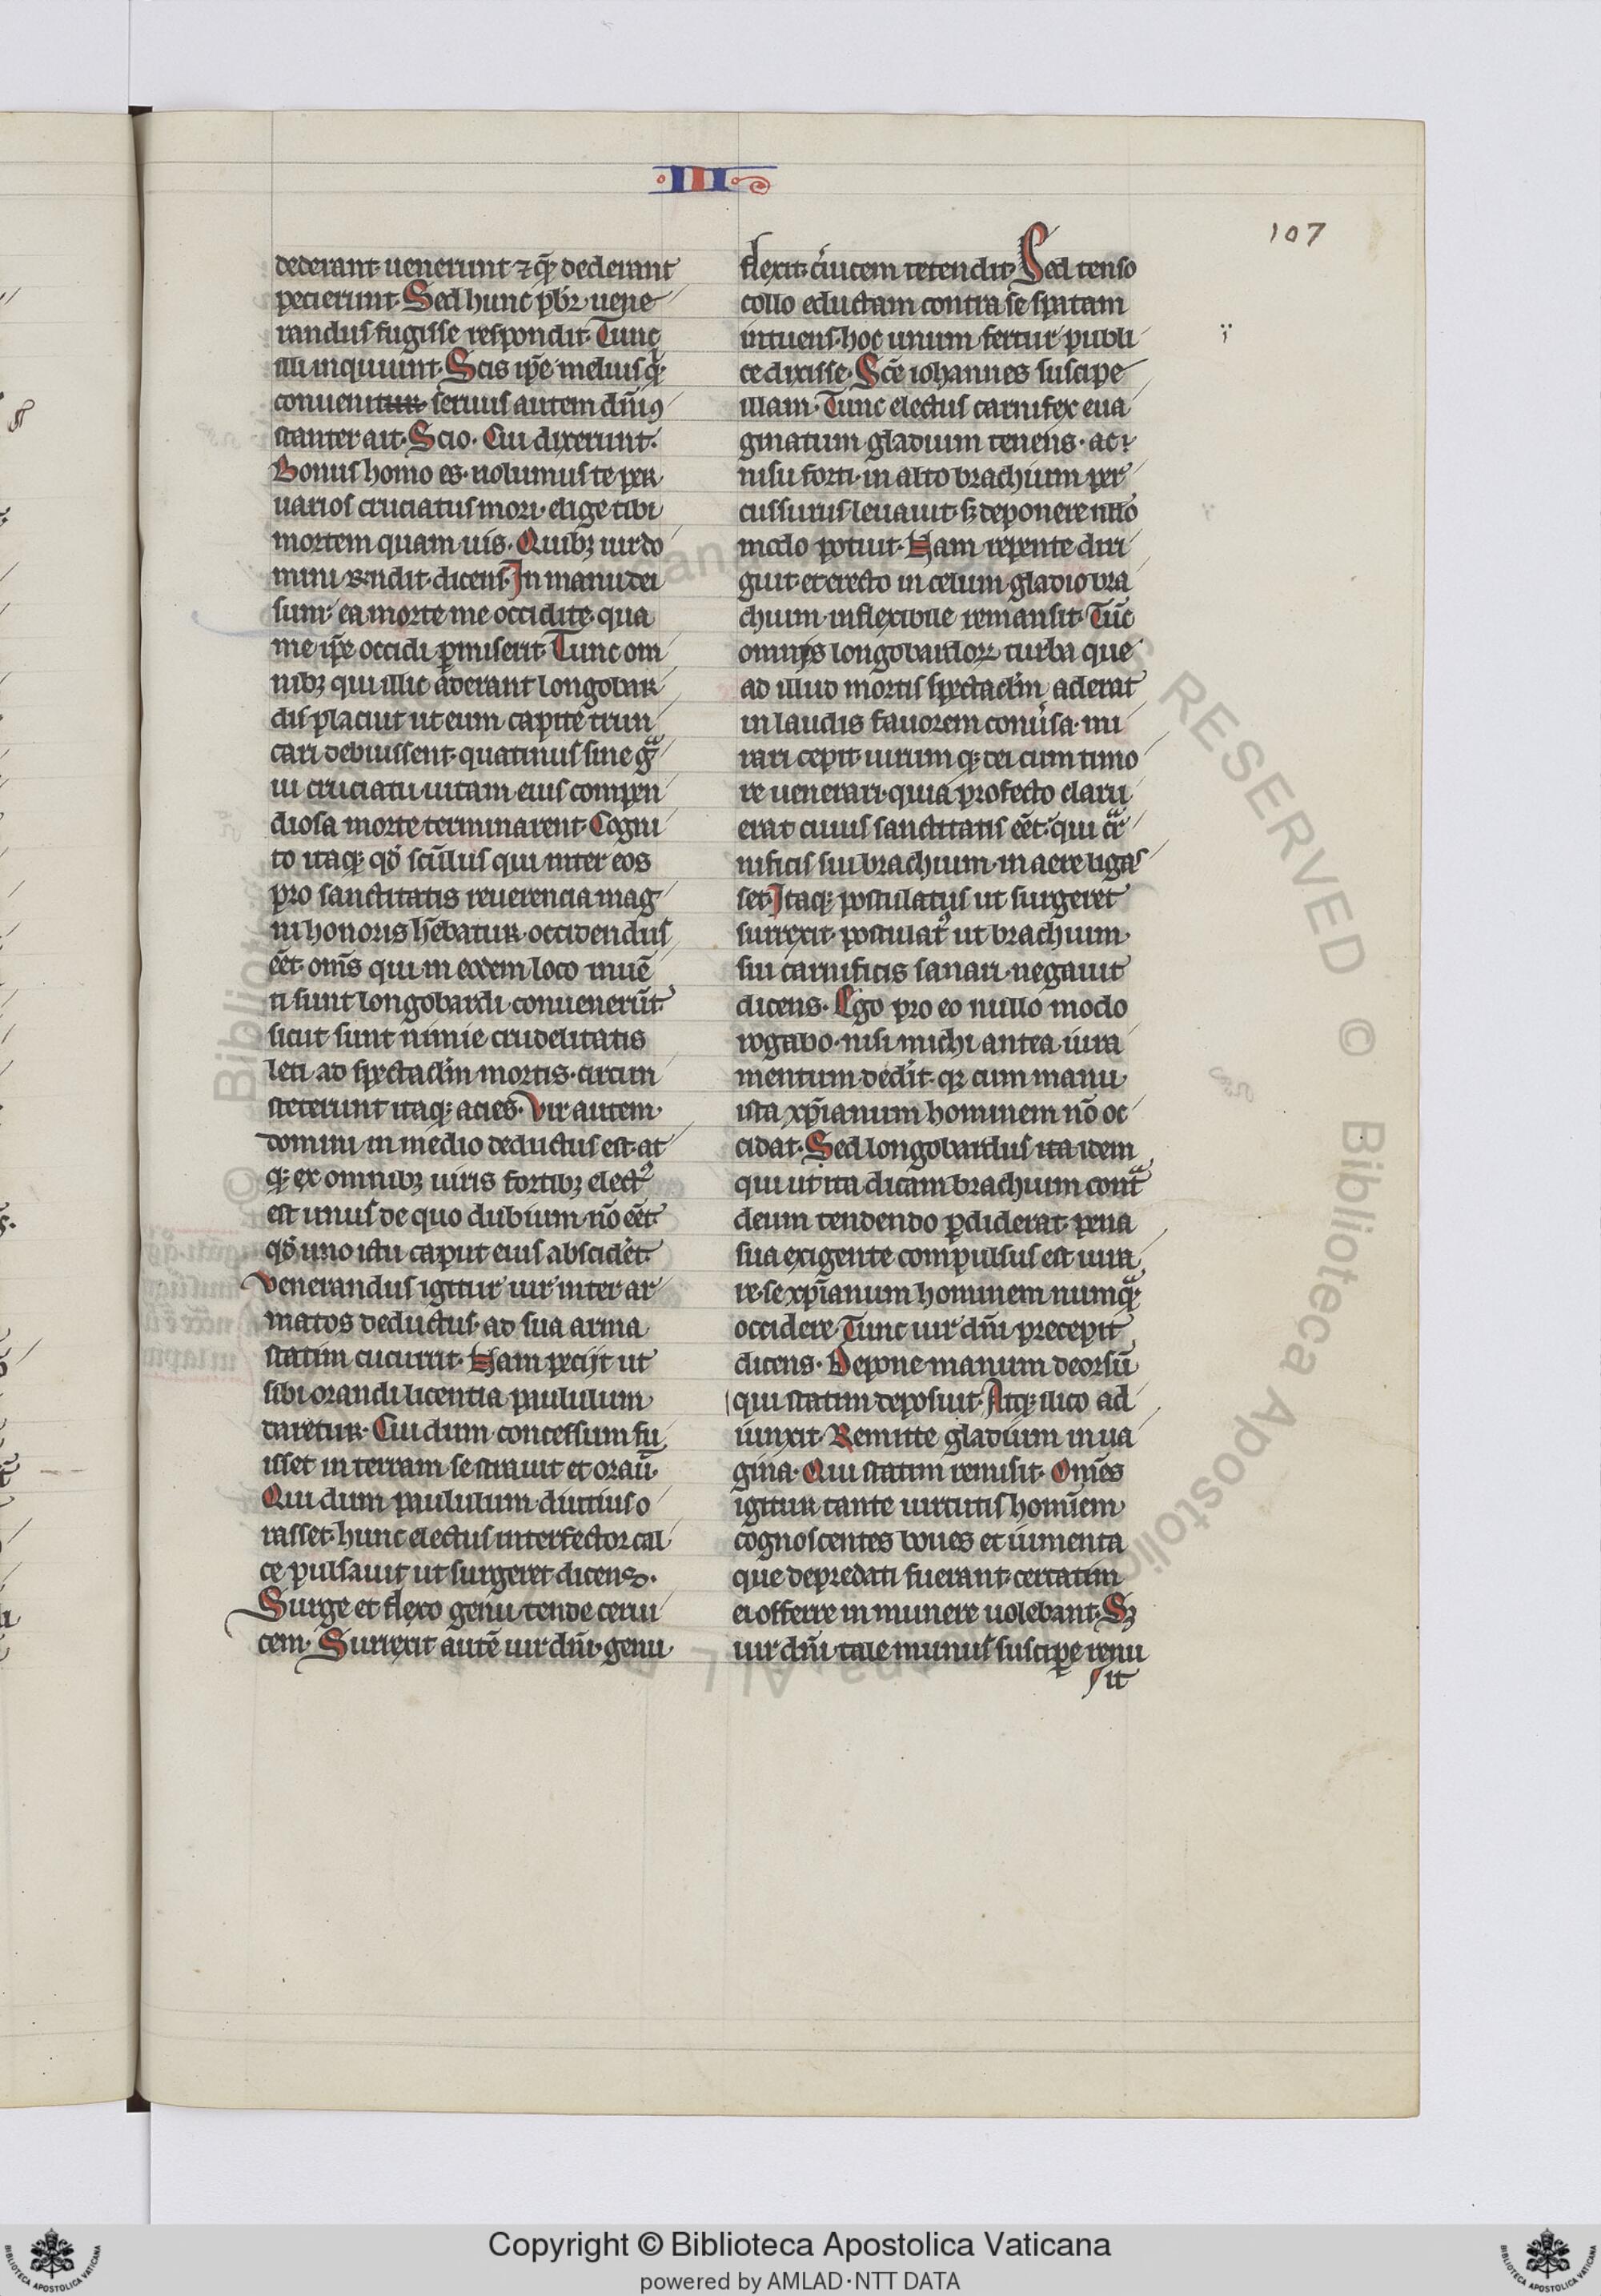 ·III·
107
dederant uenerunt ⁊ q̄ dederant
pecierunt. Sed hunc p̄br̄ uene
randus fugisse respondit. Tunc
illi inquiunt. Scis ip̄e melius q̇
conueniṫ seruus autem dn̄i ꝯ
stanter ait. Scio. Cui dixerunt.
Bonus homo es. nolumus te per
uarios cruciatus mori. elige tibi
mortem quam uis. Quibꝫ uir do
mini rn̄dit dicens. In manu dei
sum. ea morte me occidite. qua
me ip̄e occidi ꝑmiserit. Tunc om
nibꝫ qui illic aderant longobar
dis placuit ut eum capite trun
cari debuissent. quatinus sine gͣ
ui cruciatu uitam eius compen
diosa morte terminarent. Cogni
to itaqꝫ qḋ scūlus qui inter eos
pro sanctitatis reuerencia mag
ni honoris h̄ebatur. occidendus
eēt. om̄s qui in eodem loco inuē
ti sunt longobardi. conuenerūt.
sicut sunt nimie crudelitatis
leti. ad spectaclm̄ mortis. circun
steterunt itaqꝫ acies. Vir autem
domini in medio deductus est. at
qꝫ ex omnibꝫ uiris fortibꝫ elect᾽
est unus de quo dubium nō eēt.
qḋ uno ictu caput eius abscid᾽et.
Venerandus igitur uir inter ar
matos deductus. ad sua arma
statim cucurrit. Nam peciit ut
sibi orandi licentia paululum
daretur. Cui dum concessum fu
isset in terram se strauit et orau̅.
Qui dum paululum diutius o
rasset. hunc electus interfector cal
ce pulsauit ut surgeret dicens.
Surge et flexo genu tende cerui
cem. Surrexit autē uir dn̄i. genu
flexit. c᾽uicem tetendit. Sed tenso
collo eductam contra se spatam
intuens. hoc unum fertur publi
ce dixisse. Sc̄e iohannes suscipe
illam. Tunc electus carnifex eua
ginatum gladium tenens. ac
nisu forti. in alto brachium per
cussurus leuauit. sꝫ deponere nullo
modo potuit. Nam repente diri
guit. et erecto in celum gladio bra
chium inflexibile remansit. Tūc
omnis longobardoꝝ turba que
ad illud mortis spectaclm̄ aderat
in laudis fauorem conu᾽sa. mi
rari cepit. uirum qꝫ dei cum timo
re uenerari. quia profecto claru
erat cuius sanctitatis eēt. qui cͣr
nificis sui brachium. in aere ligas
set. Itaqꝫ postulatus ut surgeret
surrexit. postulat᾽ ut brachium
sui carnificis sanari. negauit
dicens. Ego pro eo nullo modo
rogabo. nisi michi antea iura
mentum dedit. qꝛ cum manu
ista xp̄ianum hominem nō oc
cidat. Sed longobardus ita idem
qui ut ita dicam brachium contͣ
deum tendendo ꝑdiderat. pena
sua exigente compulsus est iura
re. se xp̄ianum hominem numqͣꝫ
occidere. Tunc uir dn̄i precepit
dicens. Depone manum deorsū
qui statim deposuit. Atqꝫ ilico ad
iunxit. Remitte gladium in ua
gina. Qui statim remisit. Om̄es
igitur tante uirtutis homīem
cognoscentes boues et iumenta
que depredati fuerant. certatim
ei offerre in munere uolebant. Sꝫ
uir dn̄i tale munus suscipe̱re renu
it